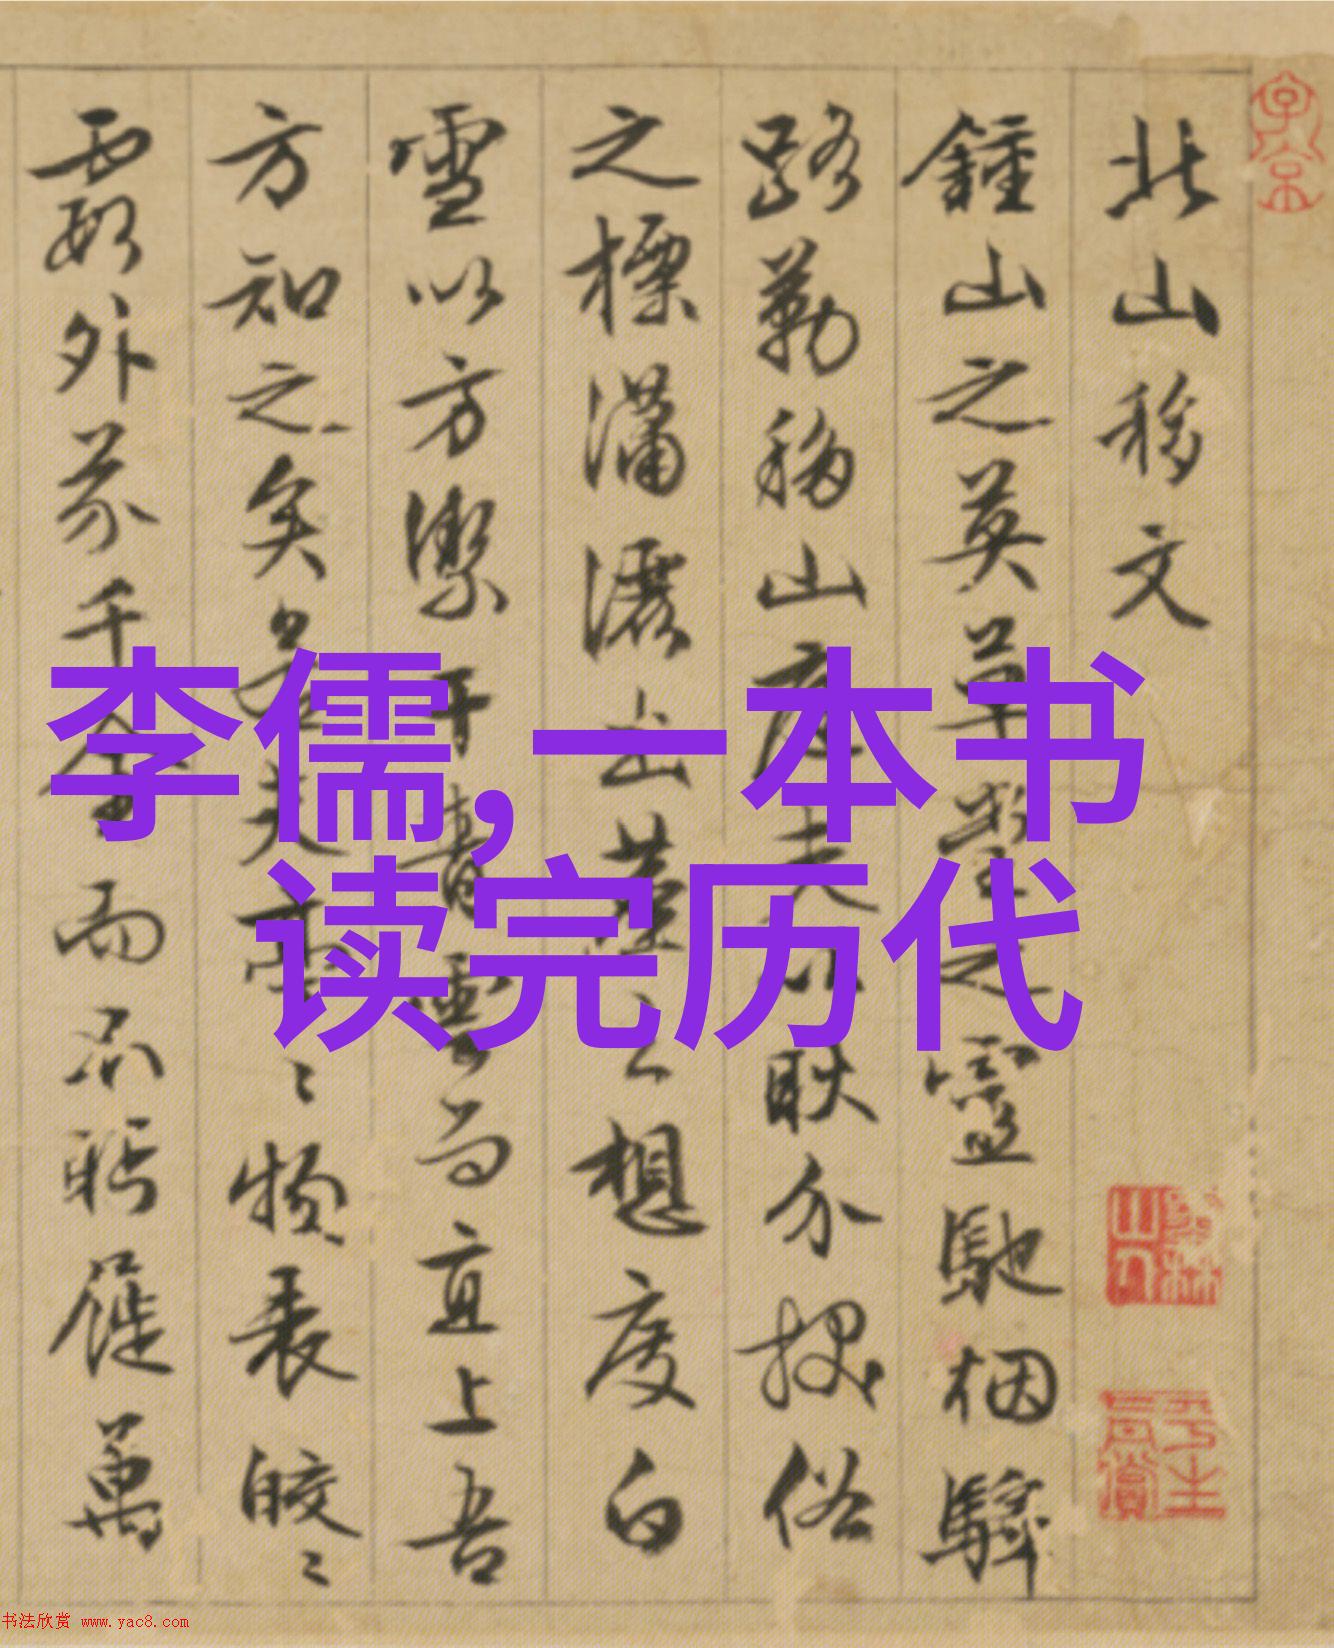 北山移文
鍾山之英草堂之靈馳烟驛
路勒移山庭夫以耿介拔俗
之標瀟灑出塵之想度白
雪以方潔干青雲而直上吾
方知之矣若其亭亭物表皎皎
霞外芥千金而不眄屣萬
李儒,一本书
读完历代
书法欣赏 www.yac8.com